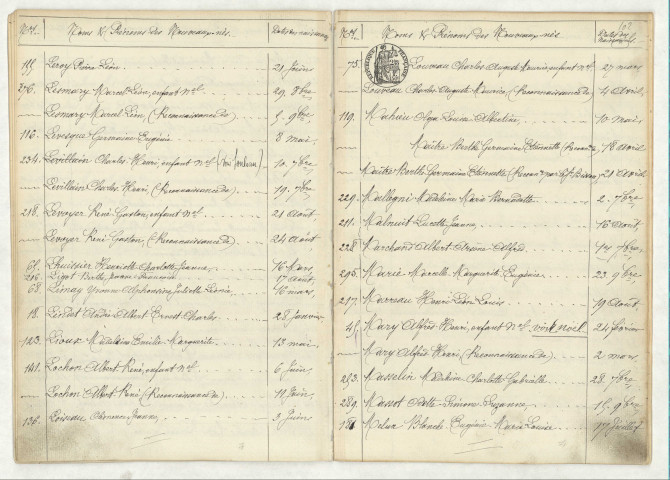 Nos. Noms & Prénoms des Nouveaux-nés. Dates des naissances
199. Leroy Léon 21 Juin
276. Lesmary Marcel Léon, enfant nel. 29. 8bre
— Lesmary Marcel Léon (Reconnaissance de) 5. 9bre
116. Levesque Germaine Eugénie 8 mai.
234. Levillain Charles Henri, enfant nel 10. 7bre
— Levillain Charles Henri (Reconnaissance de) 19. 7bre
218. Levoyer René Gaston, enfant nel. 21 Août
— Levoyer René Gaston, (Reconnaissance de) 24 Août
65. Lhuissier Henriette Charlotte Jeanne 16 Mars,
206 Ligot Berthe Jeanne 17 Août
68 Limay Yvonne Alphonsine Juliette 16 mars,
18. Liedet André Albert Ernest Charles 28 janvier
123. Lioux Madeleine Emilie Marguerite 13 mai.
141. Lochon Albert René, enfant nel. 6 Juin
— Lochon Albert René (Reconnaissance de) 11 Juin,
136. Loiseau Clémence Jeanne 3 Juin
Nos. Noms & Prénoms des Nouveaux-nés Dates des
75. Louveau Charles August Maurice, enfant nel. 27 mars
— Louveau Charles August Maurice (Reconnaissance de) 4 Avril,
119. Mahieu Olga Louise Albertine 10 mai,
Maitre Berthe Germaine Etiennette 18 Avril
Maitre Berthe Germaine Etiennette 21 Avril
229. Mallegni Madeleine Marie Bernadette 2. 7bre
211. Malnuit Lucette Jeanne 16 Août,
228 Marchand Albert Alfred 14 7bre
295. Marie Marcelle Marguerite Eugénie 22 9bre
217. Marreau Henri Léon Louis 19 Août,
45. Mary Alfred Henri, enfant nel. voir noël 24 février
— Mary Alfred Henri (Reconnaissance de) 2 mars
253. Masselin Madeleine Charlotte Gabrielle 28. 7bre
289. Massot Odette Simone Suzanne 15. 9bre
181 Melun Blanche Eugénie Marie Louise 17 Juillet